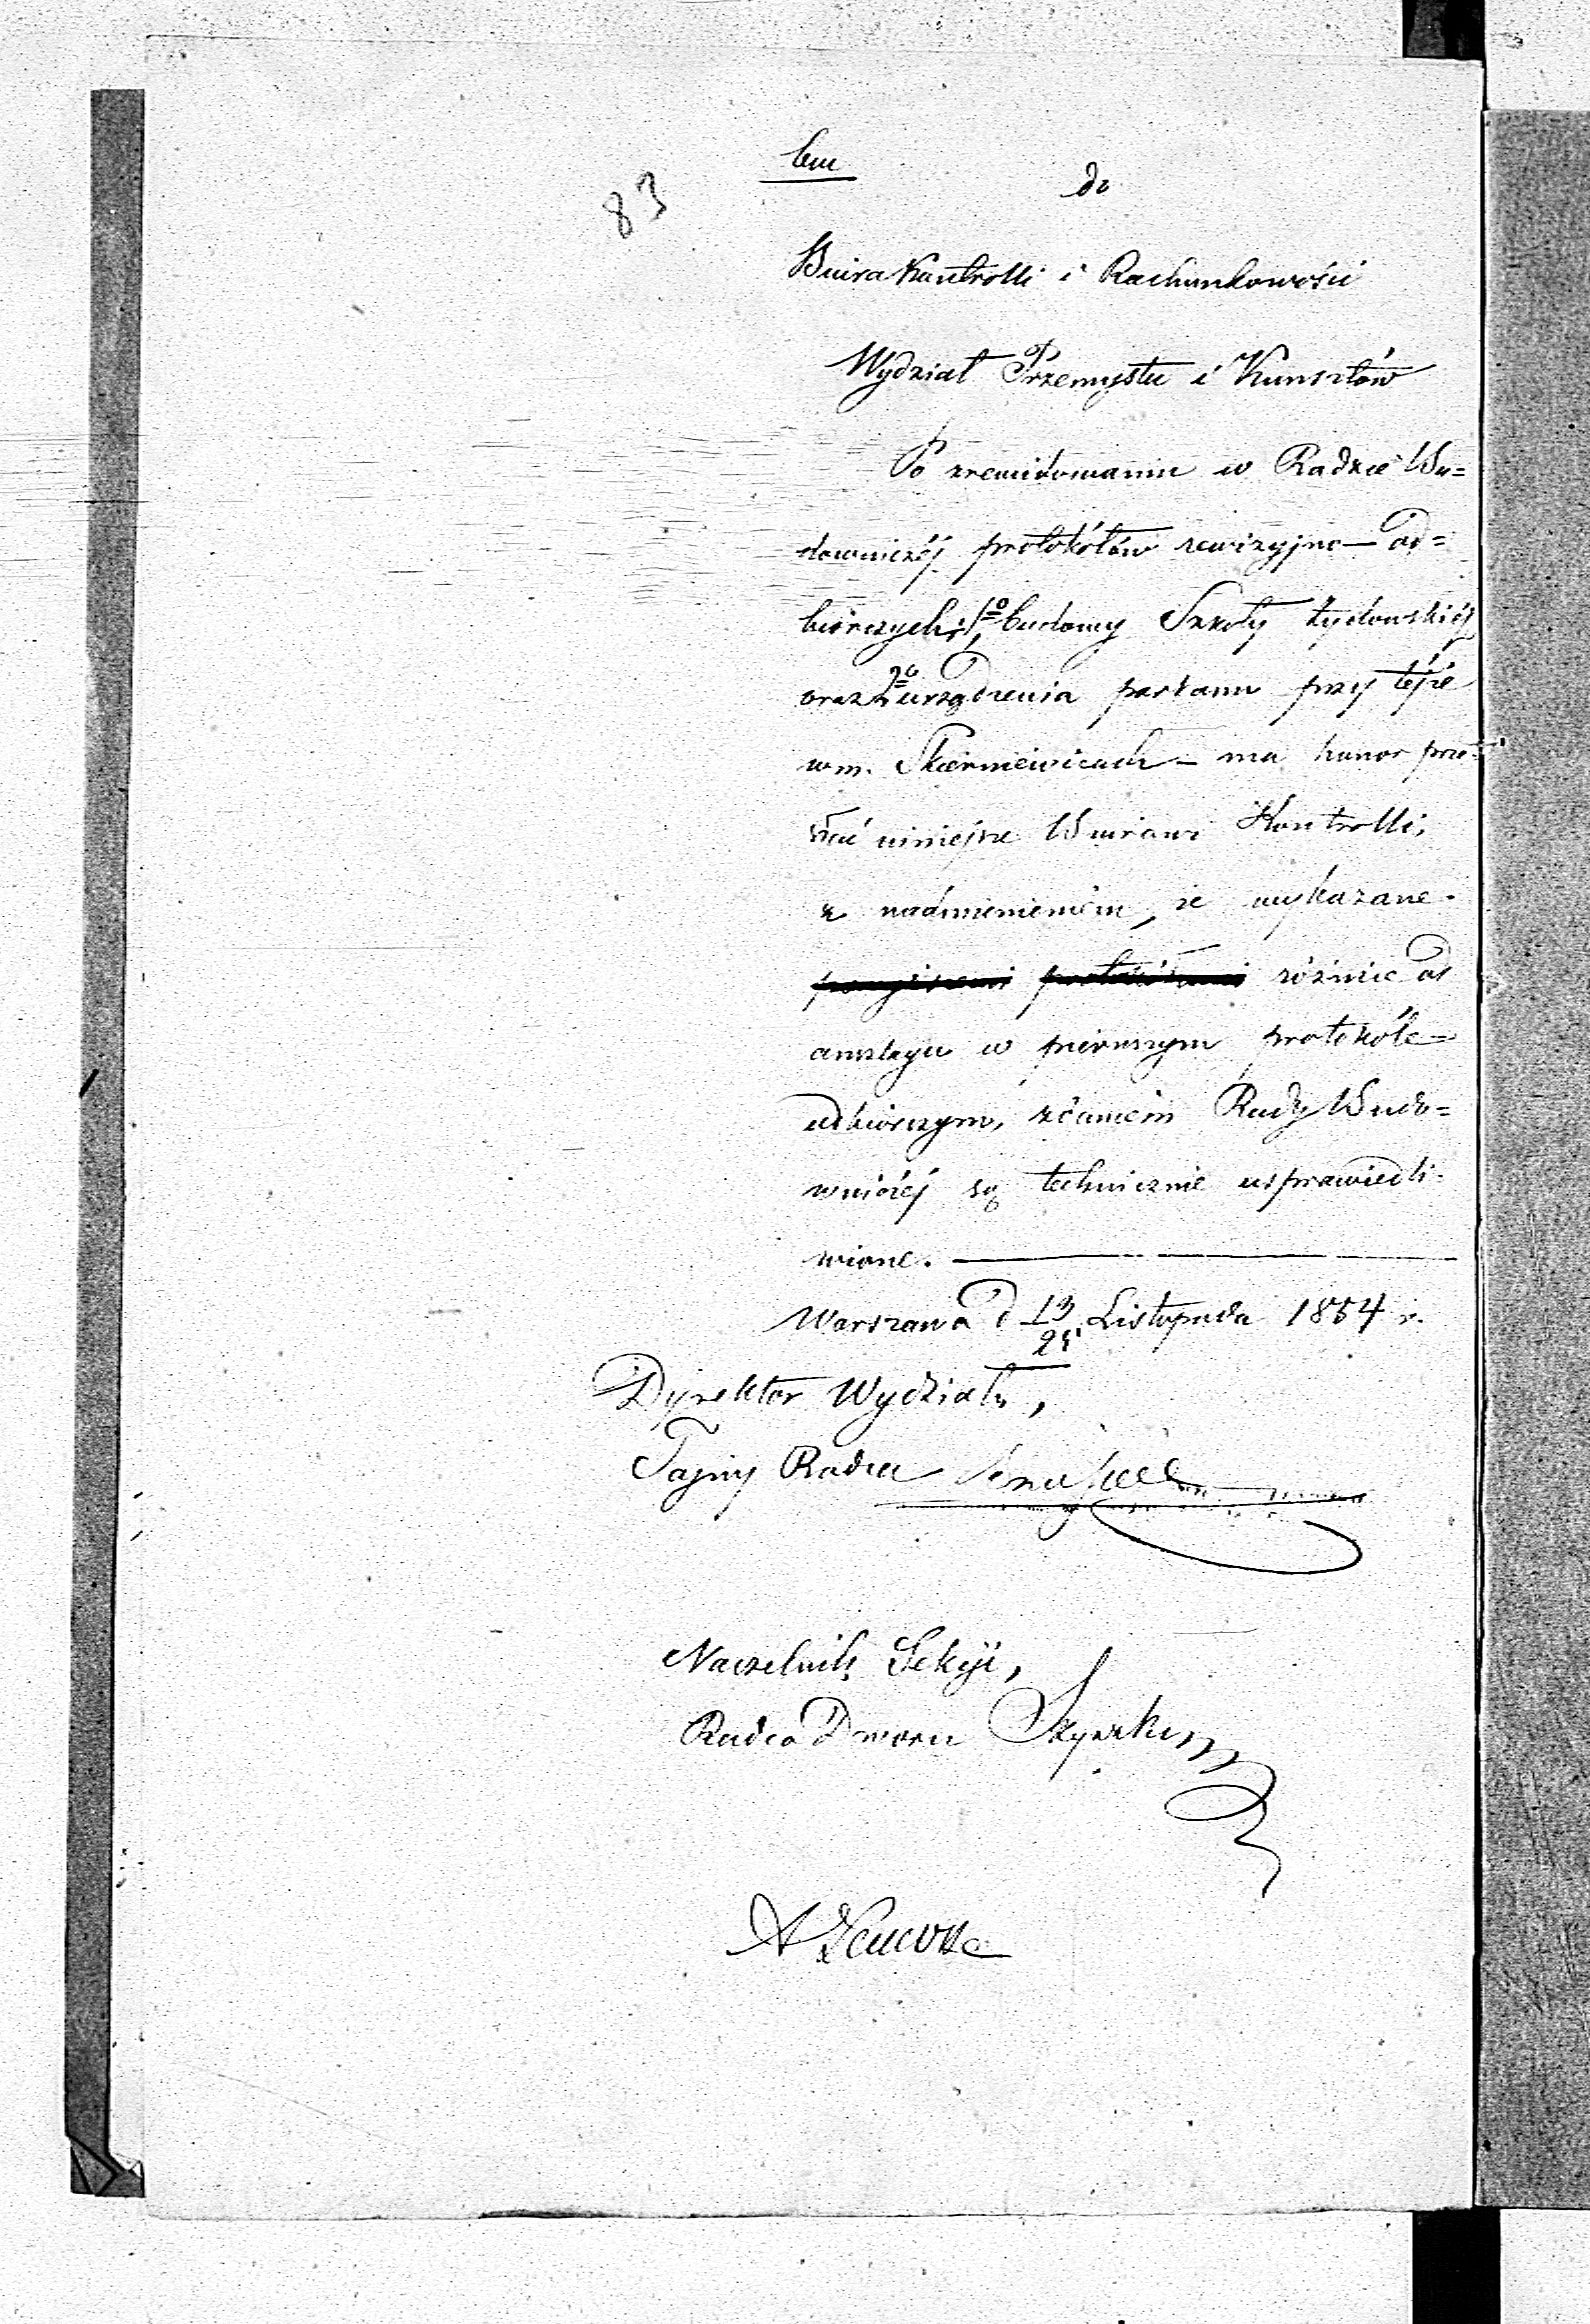 83
do
Biura Kontrolli i Rachunkowości
Wydział Przemysłu i Kunsztów
Po zrewidowaniu w Radzie Bu=
downiczéj protokółów rewizyjno—od=
biórczych: 1o budowy Szkoły żydowskiéj
oraz 2o urządzenia parkanu przy téjże
w m. Skierniewicach — ma honor prze=
słać niniejsze Biurowi Kontrolli,
z nadmienieniem, że wykazane
różnice od
anszlagu w pierwszym protokóle
odbiorczym, zdaniem Rady Budo=
wniczéj są technicznie usprawiedli-
wione.
Warszawa d 13/25 Listopada 1854 r.
Dyrektor Wydziału,
Tajny Radca
Naczelnik Sekcji,
Radca Dworu